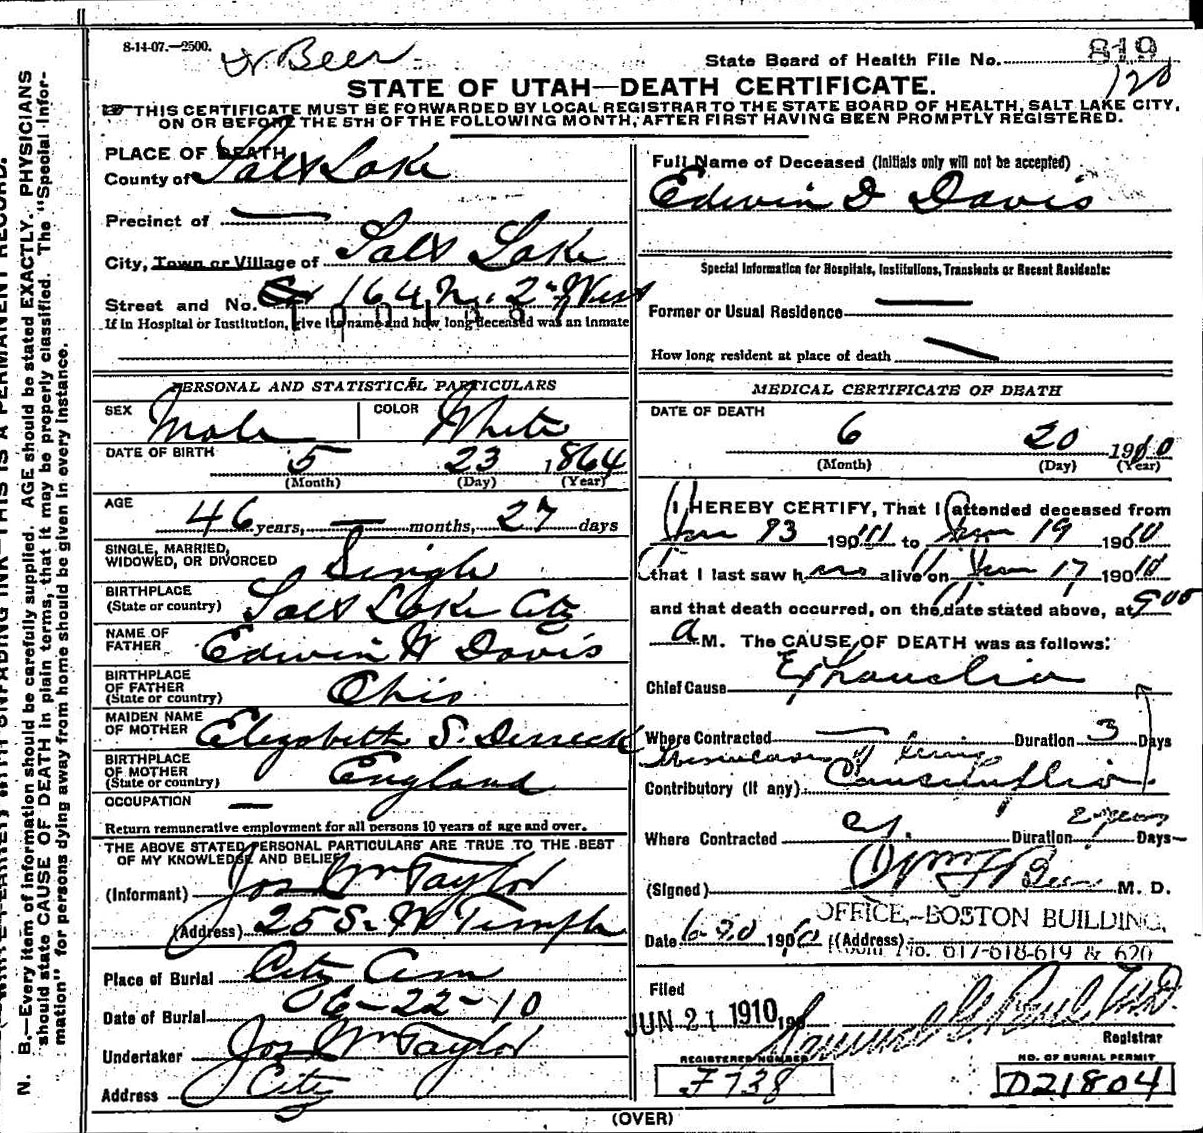 8-14-07.—2500.
Dr Beer
State Board of Health File No. 819
120
STATE OF UTAH—DEATH CERTIFICATE.
THIS CERTIFICATE MUST BE FORWARDED BY LOCAL REGISTRAR TO THE STATE BOARD OF HEALTH, SALT LAKE CITY,
ON OR BEFORE THE 5TH OF THE FOLLOWING MONTH, AFTER FIRST HAVING BEEN PROMPTLY REGISTERED.
PLACE OF DEATH
County of Salt Lake
Precinct of —
City, Town or Village of Salt Lake
Street and No. 164 N. 2nd West
If in Hospital or Institution, give its name and how long deceased was an inmate
PERSONAL AND STATISTICAL PARTICULARS
SEX Male COLOR White
DATE OF BIRTH 5 23 1864
(Month) (Day) (Year)
AGE 46 years, — months, 27 days
SINGLE, MARRIED,
WIDOWED, OR DIVORCED Single
BIRTHPLACE
(State or country) Salt Lake City
NAME OF
FATHER Edwin W Davis
BIRTHPLACE
OF FATHER
(State or country) Ohio
MAIDEN NAME
OF MOTHER Elizabeth S. Derrick
BIRTHPLACE
OF MOTHER
(State or country) England
OCCUPATION —
Return remunerative employment for all persons 10 years of age and over.
THE ABOVE STATED PERSONAL PARTICULARS ARE TRUE TO THE BEST
OF MY KNOWLEDGE AND BELIEF
(Informant) Jos Wm Taylor
(Address) 25 S. W Temple
Place of Burial City Cem
Date of Burial 06-22-10
Undertaker Jos Wm Taylor
Address City
Full Name of Deceased (Initials only will not be accepted)
Edwin D Davis
Special Information for Hospitals, Institutions, Transients or Recent Residents:
Former or Usual Residence —
How long resident at place of death —
MEDICAL CERTIFICATE OF DEATH
DATE OF DEATH
6 20 1910
(Month) (Day) (Year)
I HEREBY CERTIFY, That I attended deceased from
190 to 19 1910
that I last saw h alive on 17 1910
and that death occurred, on the date stated above, at 9 00
a M. The CAUSE OF DEATH was as follows:
Chief Cause Exhaustion
Where Contracted — Duration 3 Days
Contributory (if any)
Where Contracted Duration 2 years Days
(Signed) Wm F Beer M. D.
OFFICE,-BOSTON BUILDING,
Date 6-20 1910 (Address) Room No. 617-618-619 & 620
Filed
JUN 21 1910
Samuel G. Paul, M.D.
Registrar
REGISTERED NUMBER
F738
NO. OF BURIAL PERMIT
D21804
(OVER)
N. B.—Every item of information should be carefully supplied. AGE should be stated EXACTLY. PHYSICIANS
should state CAUSE OF DEATH in plain terms, that it may be properly classified. The "Special Infor-
mation" for persons dying away from home should be given in every instance.
THIS IS A PERMANENT RECORD.